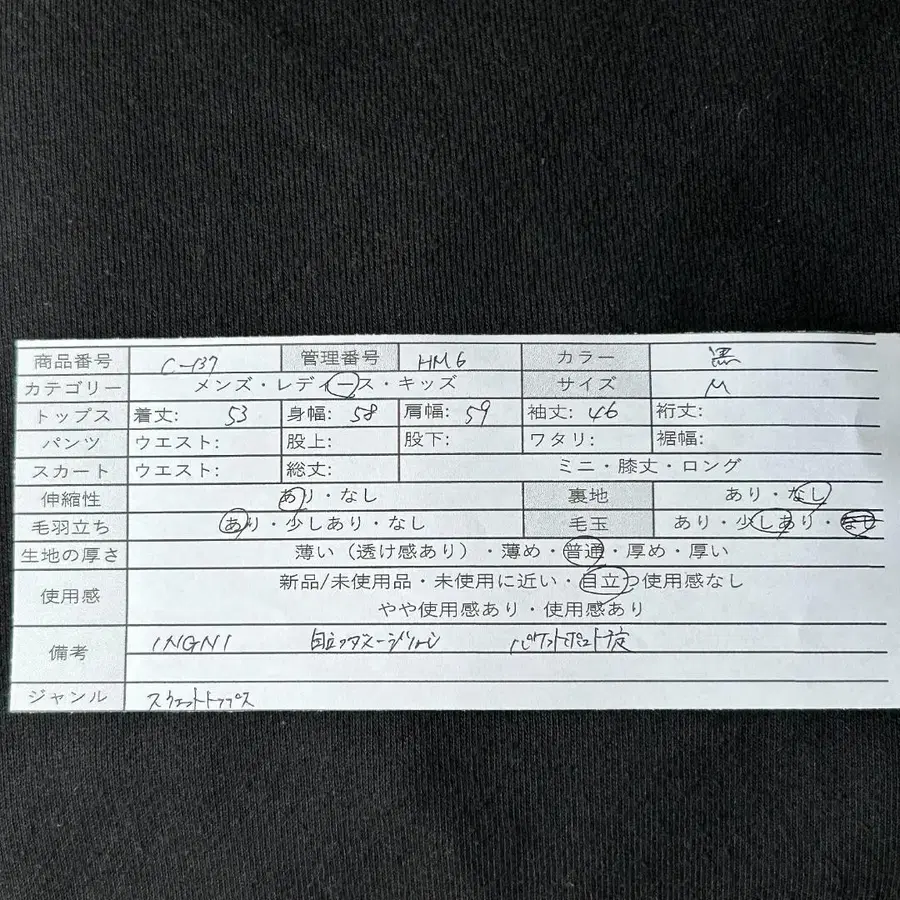 商品番号 C-137 管理番号 HM6 カラー 黒
カテゴリー メンズ・レディース・キッズ サイズ M
トップス 着丈: 53 身幅: 58 肩幅: 59 袖丈: 46 裄丈:
パンツ ウエスト: 股上: 股下: ワタリ: 裾幅:
スカート ウエスト: 総丈: ミニ・膝丈・ロング
伸縮性 あり・なし 裏地 あり・なし
毛羽立ち あり・少しあり・なし 毛玉 あり・少しあり・なし
生地の厚さ 薄い(透け感あり)・薄め・普通・厚め・厚い
使用感 新品/未使用品・未使用に近い・目立つ使用感なし
やや使用感あり・使用感あり
備考 INGNI 目立つダメージなし
ジャンル スウェットトップス